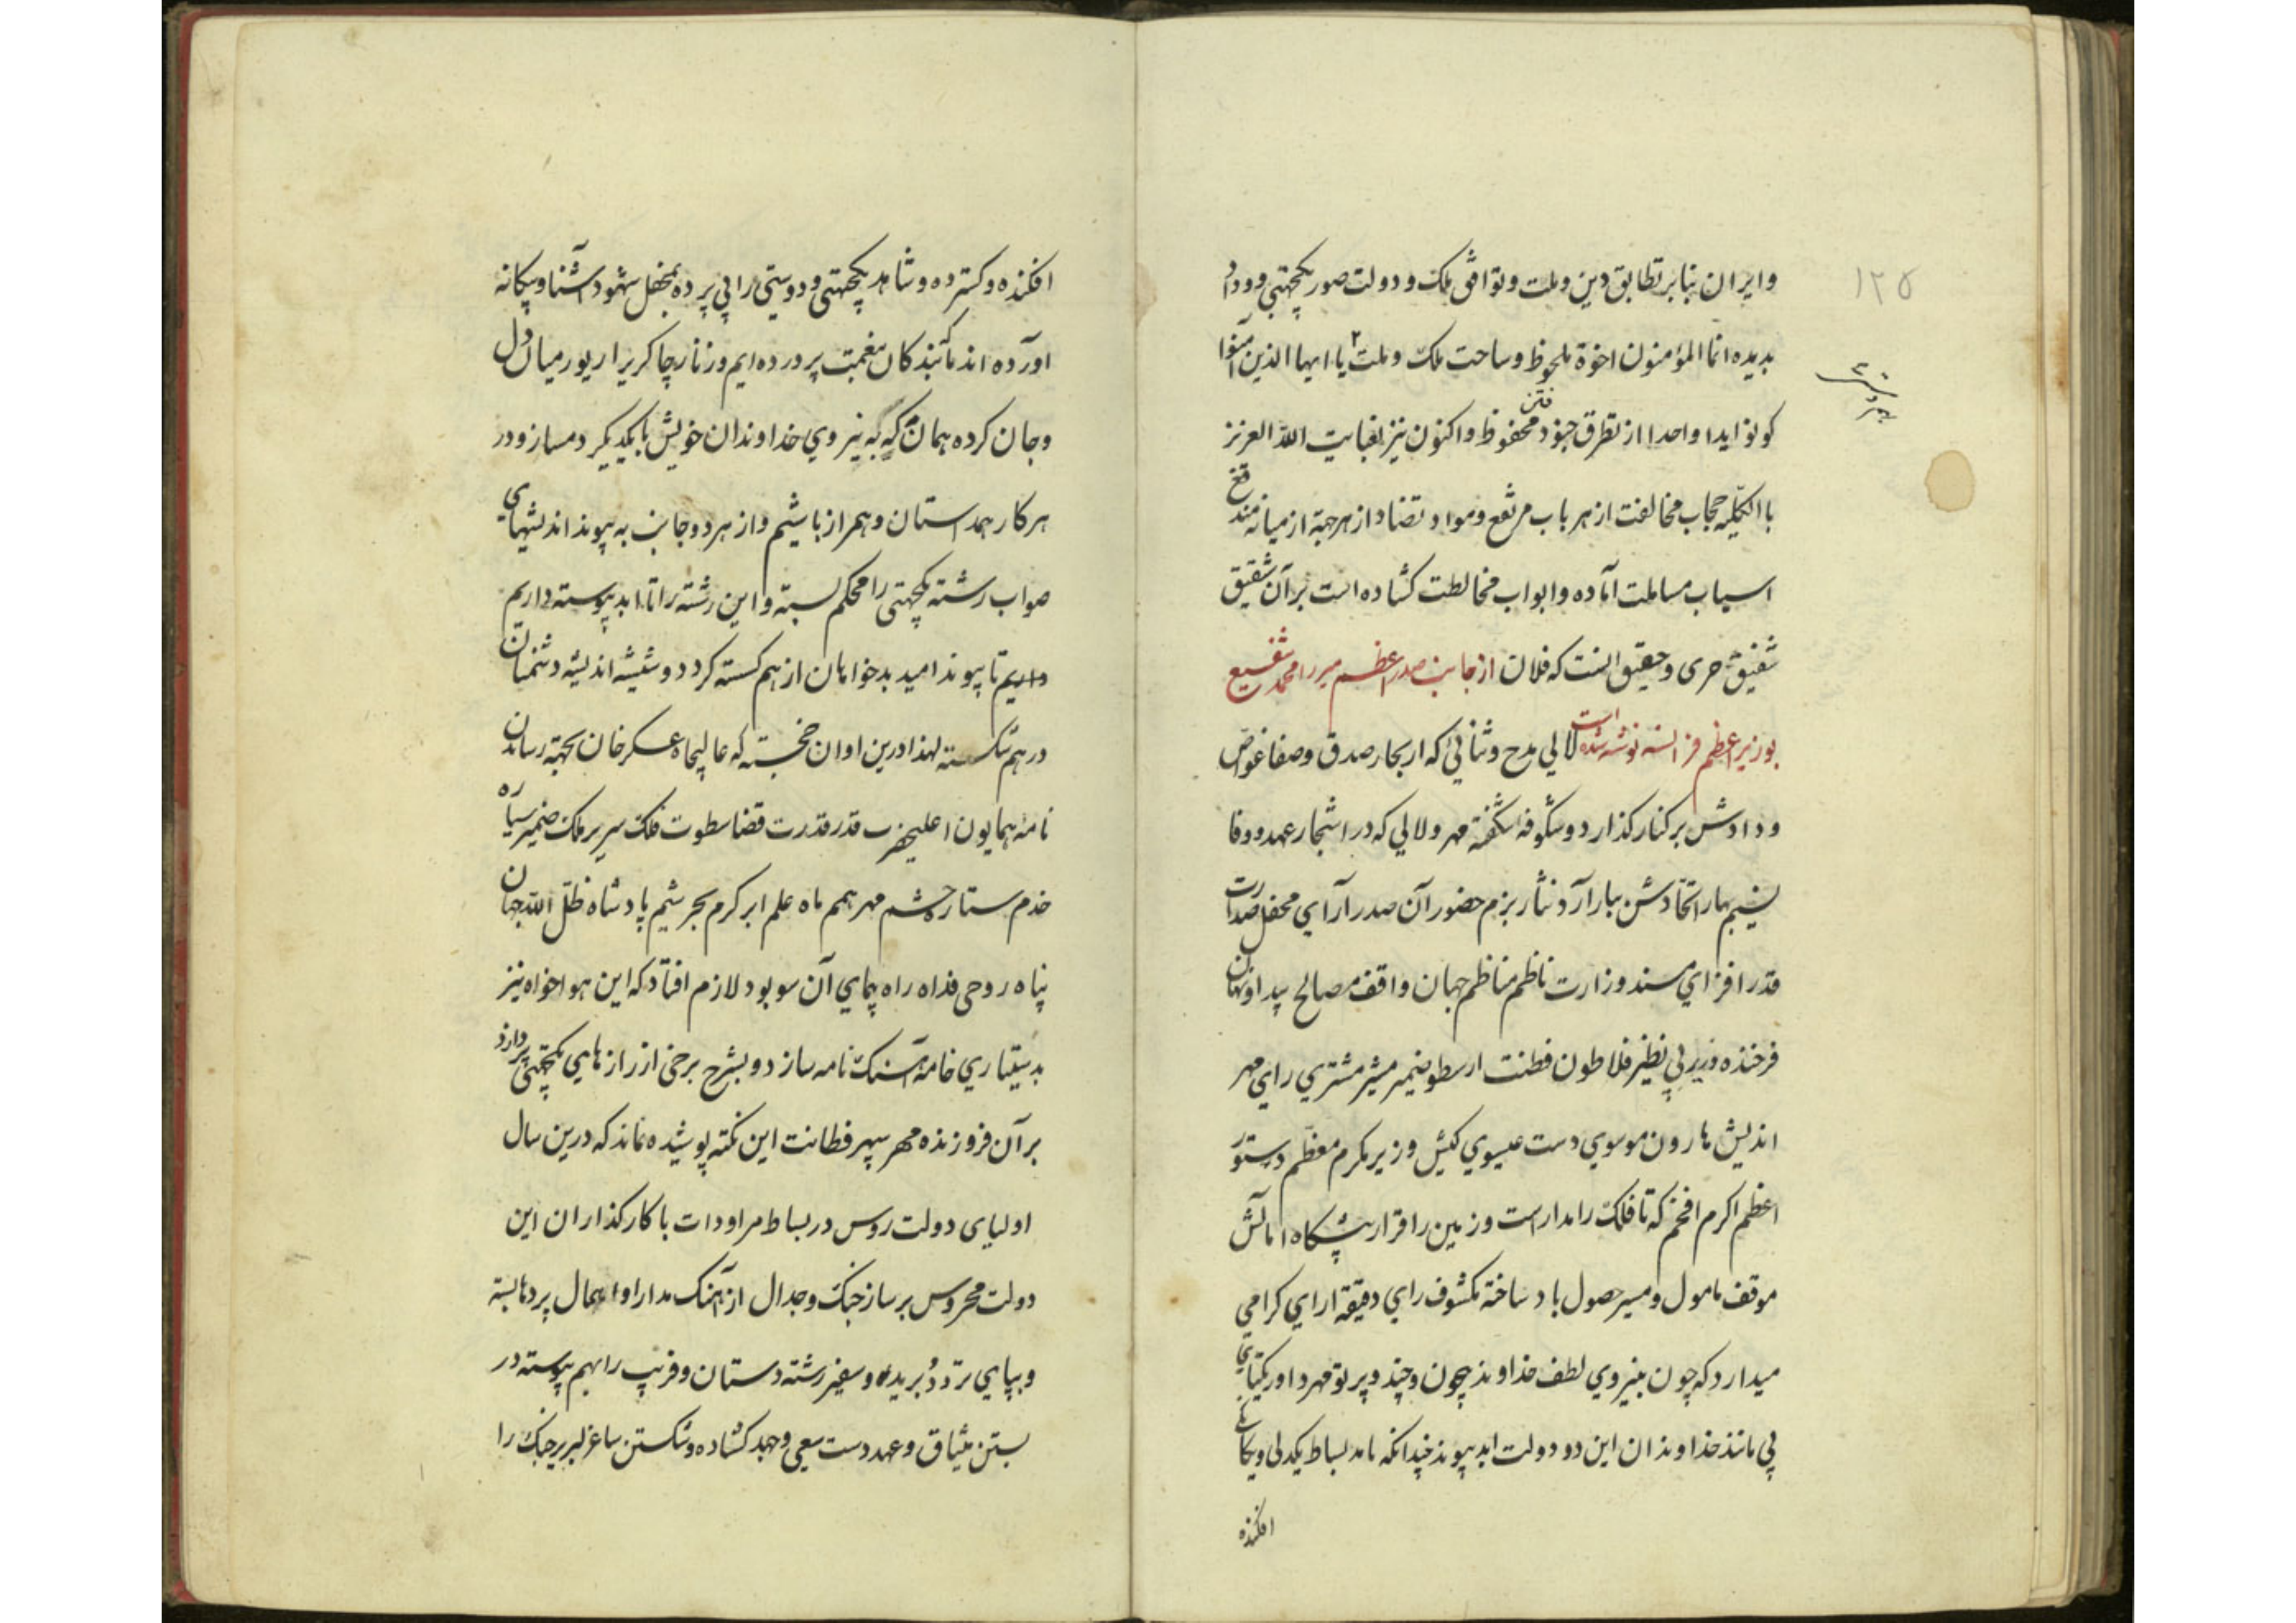 ۱۲۵
وایران بنابر تطابق دین و ملت و توافق ملک و دولت صور یکجهتی و وداد
بدیده انما المؤمنون اخوة ملحوظ و ساحت ملک و ملت یا ایها الذین آمنوا
کونوا یدا واحدا از تطرق جنود فتن محفوظ و اکنون نیز بغایت الله العزیز
باالکلیه حجاب مخالفت از هر باب مرتفع و مواد تضاد از هر جهة از میانه مندفع
اسباب مسالمت آماده و ابواب مخالطت کشاده است بر آن شقیق
شفیق حری و حقیق النت که فلان از جانب صدر اعظم میرزا محمد شفیع
بوزیر اعظم فرانسه نوشته شده است لالی مدح و ثنائی که از بحار صدق و صفا غواص
ودادش بر کنار کذارد و شکوفه شکفته مهر و لالی که در اشجار عهد و وفا
نسیم بهار اتحادش ببار آرد نثار بزم حضور آن صدر آرای محفل صدارت
قدر افزای مسند وزارت ناظم مناظم جهان واقف مصالح پیدا و نهان
فرخنده وزیر بی نظیر فلاطون فطنت ارسطو ضمیر مشیر مشتری رای مهر
اندیش هارون موسوی دست عیسوی کیش وزیر مکرم معظم دستور
اعظم اکرم افخم که تا فلک را مدار است و زمین را قرار پیشکاه امالش
موقف مامول و مسیر حصول باد ساخته مکشوف رای دقیقه ارای کرامی
میدارد که چون بنیروی لطف خداوند چون و چند و پرتو مهر داور یکتای
بی مانند خداوندان این دو دولت ابد پیوند چندانکه باید بساط یکدلی و یکانکی
افکنده
افکنده و کسترده و شاهد یکجهتی و دوستی را بی پرده بمحفل شهود آشنا و بیکانه
اورده اند ما بندکان نعمت پرورده ایم و زنار چاکری را زیور میان دل
و جان کرده همان به که به نیروی خداوندان خویش با یکدیکر دمساز و در
هر کار همداستان و همراز باشیم و از هر دو جانب به پیوند اندیشهای
صواب رشته یکجهتی را محکم بسته و این رشته را تا ابد پیوسته داریم
داریم تا پیوند امید بدخواهان از هم کسسته کردد و شیشه اندیشه دشمنان
در هم شکسته لهذا درین اوان خجسته که عالیجاه عسکر خان بجهة رساندن
نامه همایون اعلیحضرت قدر قدرت قضا سطوت فلک سریر ملک ضمیر سیاره
خدم ستاره حشم مهر همم ماه علم ابر کرم بحر شیم پادشاه ظل الله جهان
پناه روحی فداه راه پیمای آن سو بود لازم افتاد که این هواخواه نیز
بدستیاری خامه آهنک نامه سازد و بشرح برخی از رازهای یکجهتی پردازد
بر آن فروزنده مهر سپهر فطانت این نکته پوشیده نماند که درین سال
اولیای دولت روس در بساط مراودات با کارکذاران این
دولت محروس بر ساز جنک و جدال از آهنک مدارا و امهال پردها بسته
و بپای تردد برید و سفیر رشته دستان و فریب را بهم پیوسته در
بستن میثاق و عهد دست سعی و جهد کشاده و شکستن ساغر لبریز جنک را